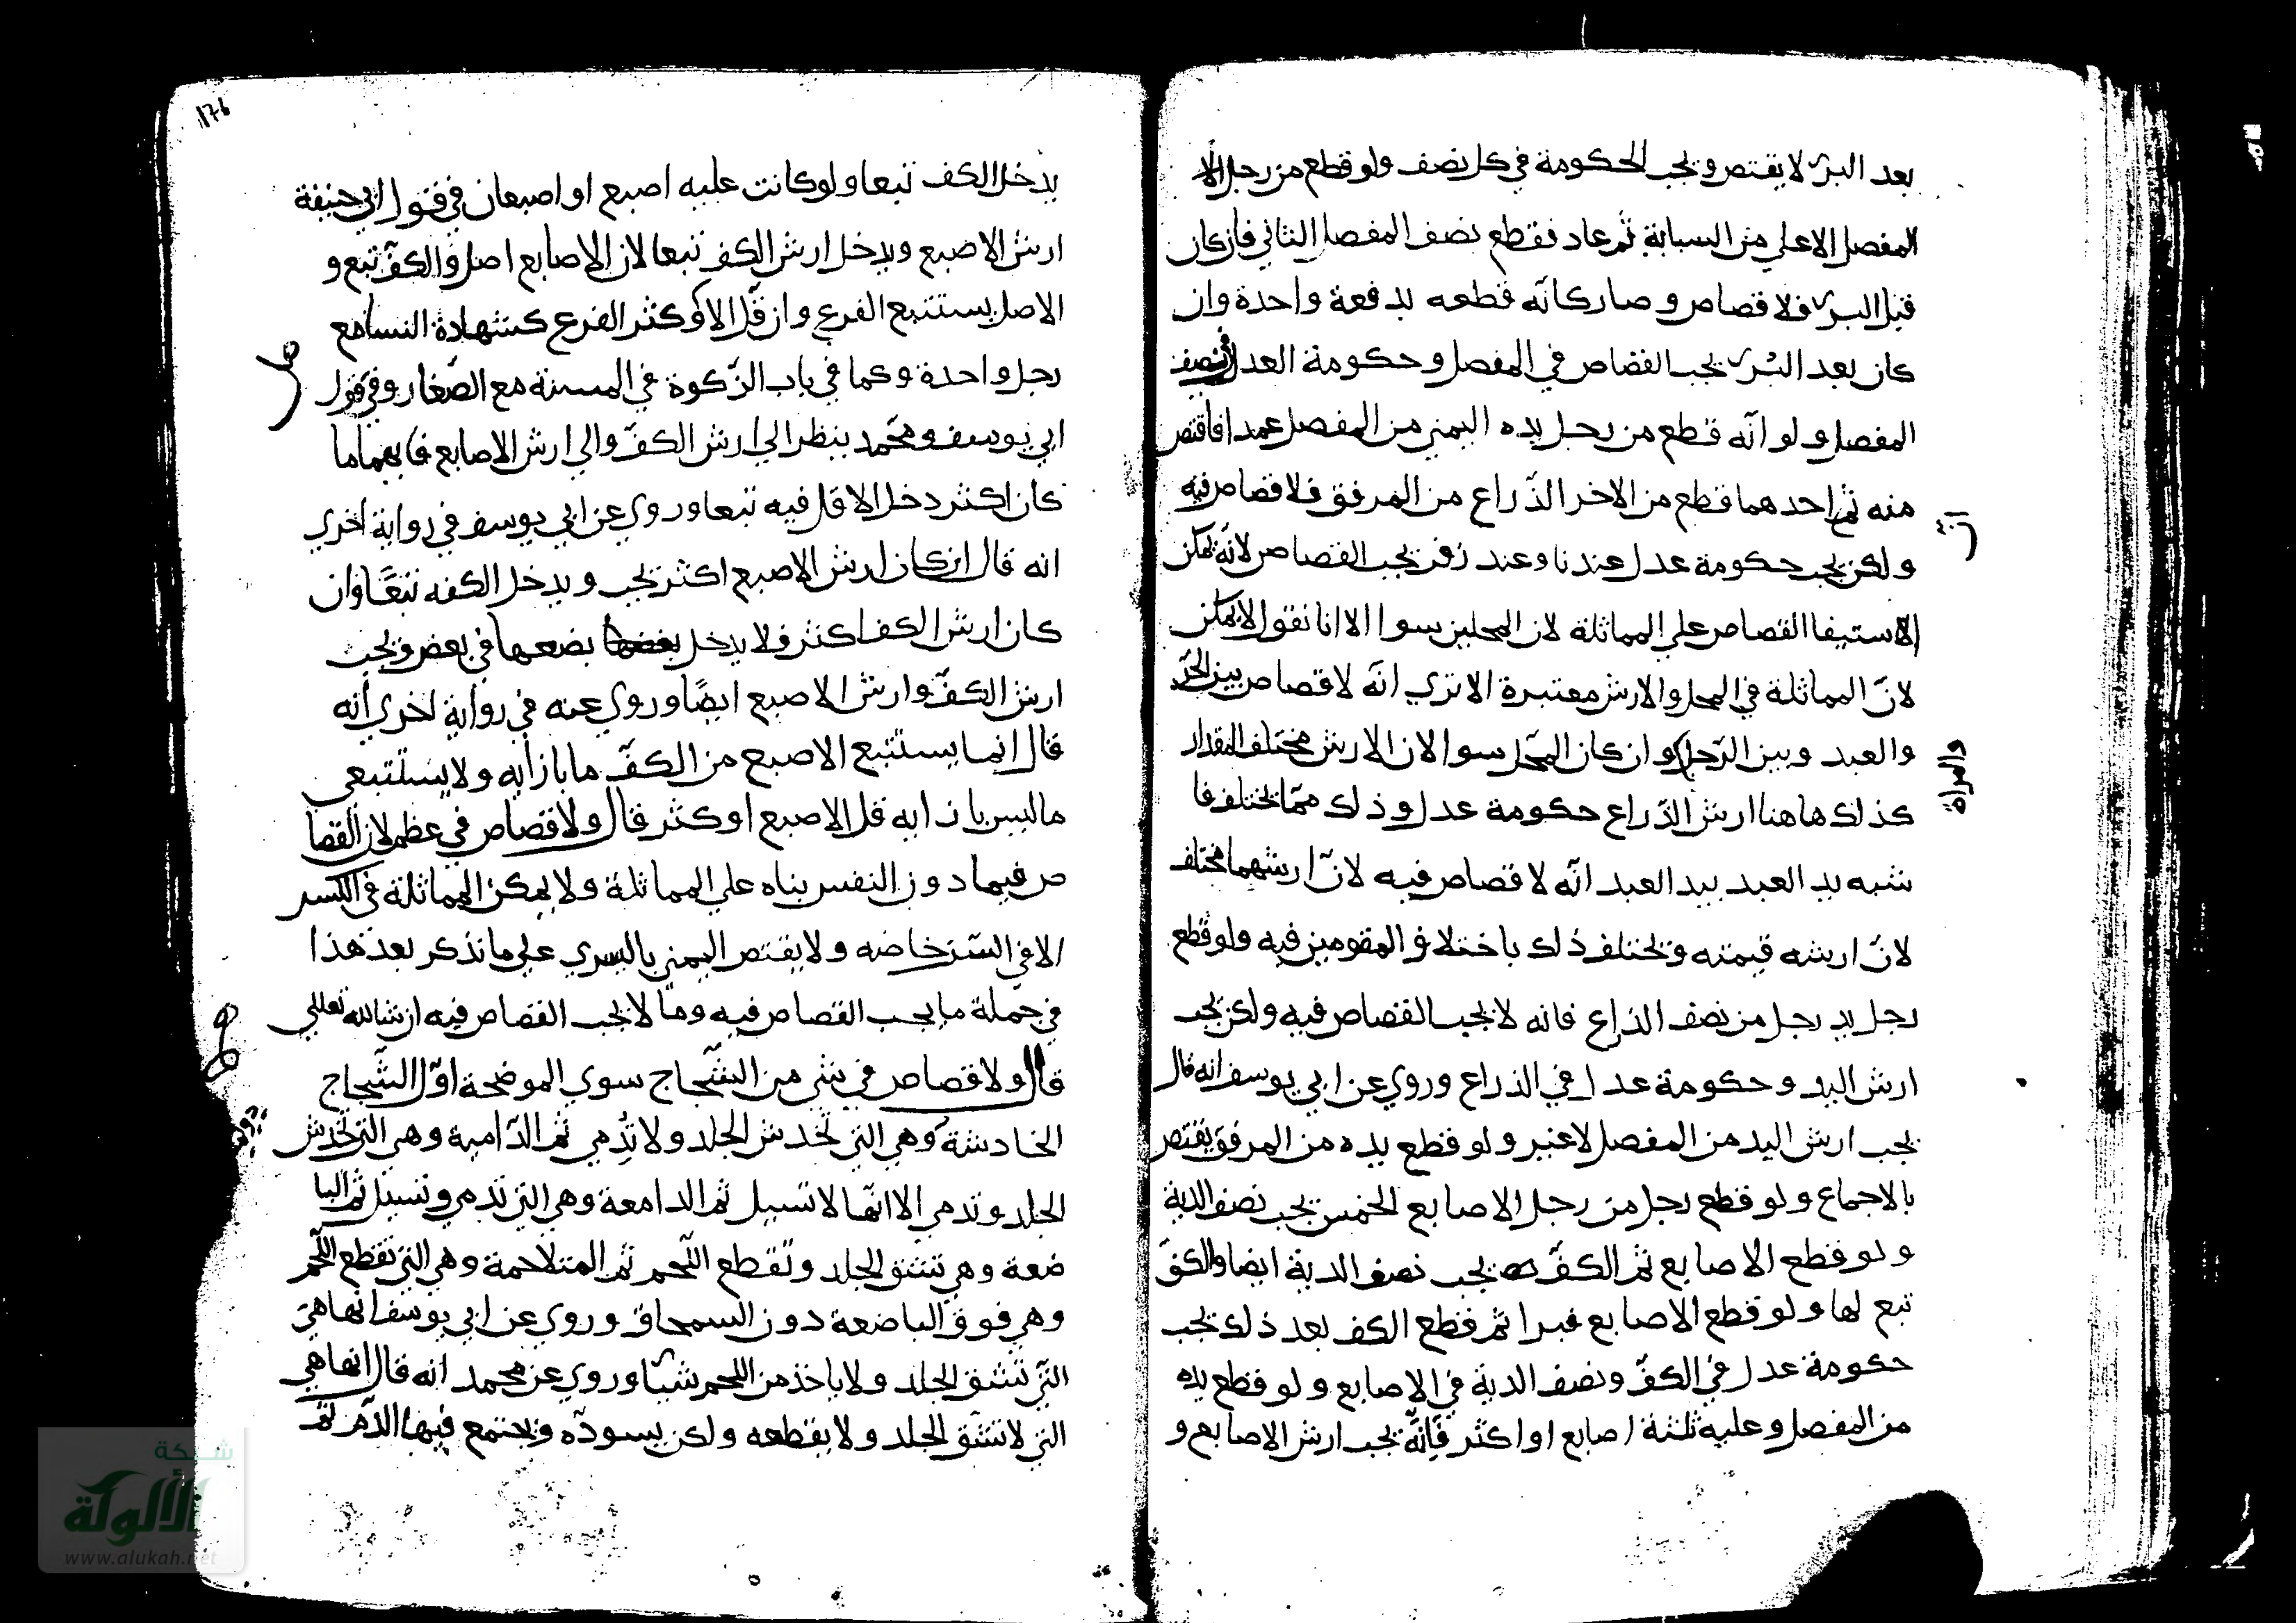 بعد البرء لا يقتص ويجب الحكومة في كل نصف ولو قطع من رجل الا
المفصل الاعلي من السبابة ثم عاد فقطع نصف المفصل الثاني فان كان
قبل البرء فلا قصاص وصار كانّه قطعه بدفعة واحدة وان
كان بعد البرء يجب القصاص في المفصل وحكومة العدل في نصف
المفصل ولو انّه قطع من رجل يده اليمني من المفصل عمدا فاقتص
منه ثم احدهما قطع من الاخر الذّراع من المرفق فلا قصاص فيه
ولكن يجب حكومة عدل عندنا وعند زفر يجب القصاص لانّه يمكن
الاستيفا القصاص علي المماثلة لان المحلين سوا الا انا نقول لا يمكن
لانّ المماثلة في المحل والارش معتبرة الا تري انّه لا قصاص بين الحرّ
والعبد وبين الرّجل وان كان المحل سوا لان الارش مختلف المقدار
والمراة
كذلك هاهنا ارش الذّراع حكومة عدل وذلك ممّا يختلف فا
شبه يد العبد بيد العبد انّه لا قصاص فيه لانّ ارشهما مختلف
لانّ ارشه قيمته ويختلف ذلك باختلاف المقومين فيه ولو قطع
رجل يد رجل من نصف الذراع فانه لا يجب القصاص فيه ولكن يجب
ارش اليد وحكومة عدل في الذراع وروي عن ابي يوسف انه قال
يجب ارش اليد من المفصل لا غير ولو قطع يده من المرفق يقتص
بالاجماع ولو قطع رجل من رجل الاصابع الخمس يجب نصف الدية
ولو قطع الاصابع ثم الكفّ يجب نصف الدية ايضا والكفّ
تبع لها ولو قطع الاصابع فبرا ثم قطع الكف بعد ذلك يجب
حكومة عدل في الكفّ ونصف الدية في الاصابع ولو قطع يده
من المفصل وعليه ثلثة اصابع او اكثر فانّه يجب ارش الاصابع و
يدخل الكف تبعا ولو كانت عليه اصبع او اصبعان ففي قول ابي حنيفة
ارش الاصبع ويدخل ارش الكف تبعا لان الاصابع اصل والكفّ تبع و
الاصل يستتبع الفرع وان قلّ الا وكثر الفرع كشهادة النسا مع
رجل واحدة وكما في باب الزّكوة في المسنة مع الصّغار وفي قول
ابي يوسف ومحمّد ينظر الي ارش الكفّ والي ارش الاصابع فايهما ما
كان اكثر دخل الاقل فيه تبعا وروي عن ابي يوسف في رواية اخري
انه قال ان كان ارش الاصبع اكثر يجب ويدخل الكفه تبعًا وان
كان ارش الكف اكثر فلا يدخل بضعها في بعض ويجب
ارش الكفّ وارش الاصبع ايضًا وروي عنه في رواية اخري انه
قال انما يستتبع الاصبع من الكفّ ما بازايه ولا يستتبعي
ما ليس بازايه قل الاصبع او كثر قال ولا قصاص في عظم لان القصا
ص فيما دون النفس بناه علي المماثلة ولا يمكن المماثلة في الكسر
الا في السّنّ خاصه ولا يقتص اليمني باليسري علي ما نذكر بعد هذا
في جملة ما يجب القصاص فيه وما لا يجب القصاص فيه ان شا الله تعالي
قال ولا قصاص في شي من الشّجاج سوي الموضحة اوّل الشّجاج
الخادشة وهي التي تخدش الجلد ولا تدمي ثم الدّامية وهي التي تخدش
الجلد وتدمي الا انّها لا تسيل ثم الدامعة وهي التي تدمي وتسيل ثم البا
ضعة وهي تشق الجلد وتقطع اللّحم ثم المتلاحمة وهي التي تقطع اللّحم
وهي فوق الباضعة دون السمحاق وروي عن ابي يوسف انها هي
التّي تشق الجلد ولا ياخذ من اللحم شيا وروي عن محمد انه قال انها هي
التي لا تشق الجلد ولا يقطعه ولكن يسودّه ويجتمع فيها الدّم ثم
شبكة
الألوكة
www.alukah.net